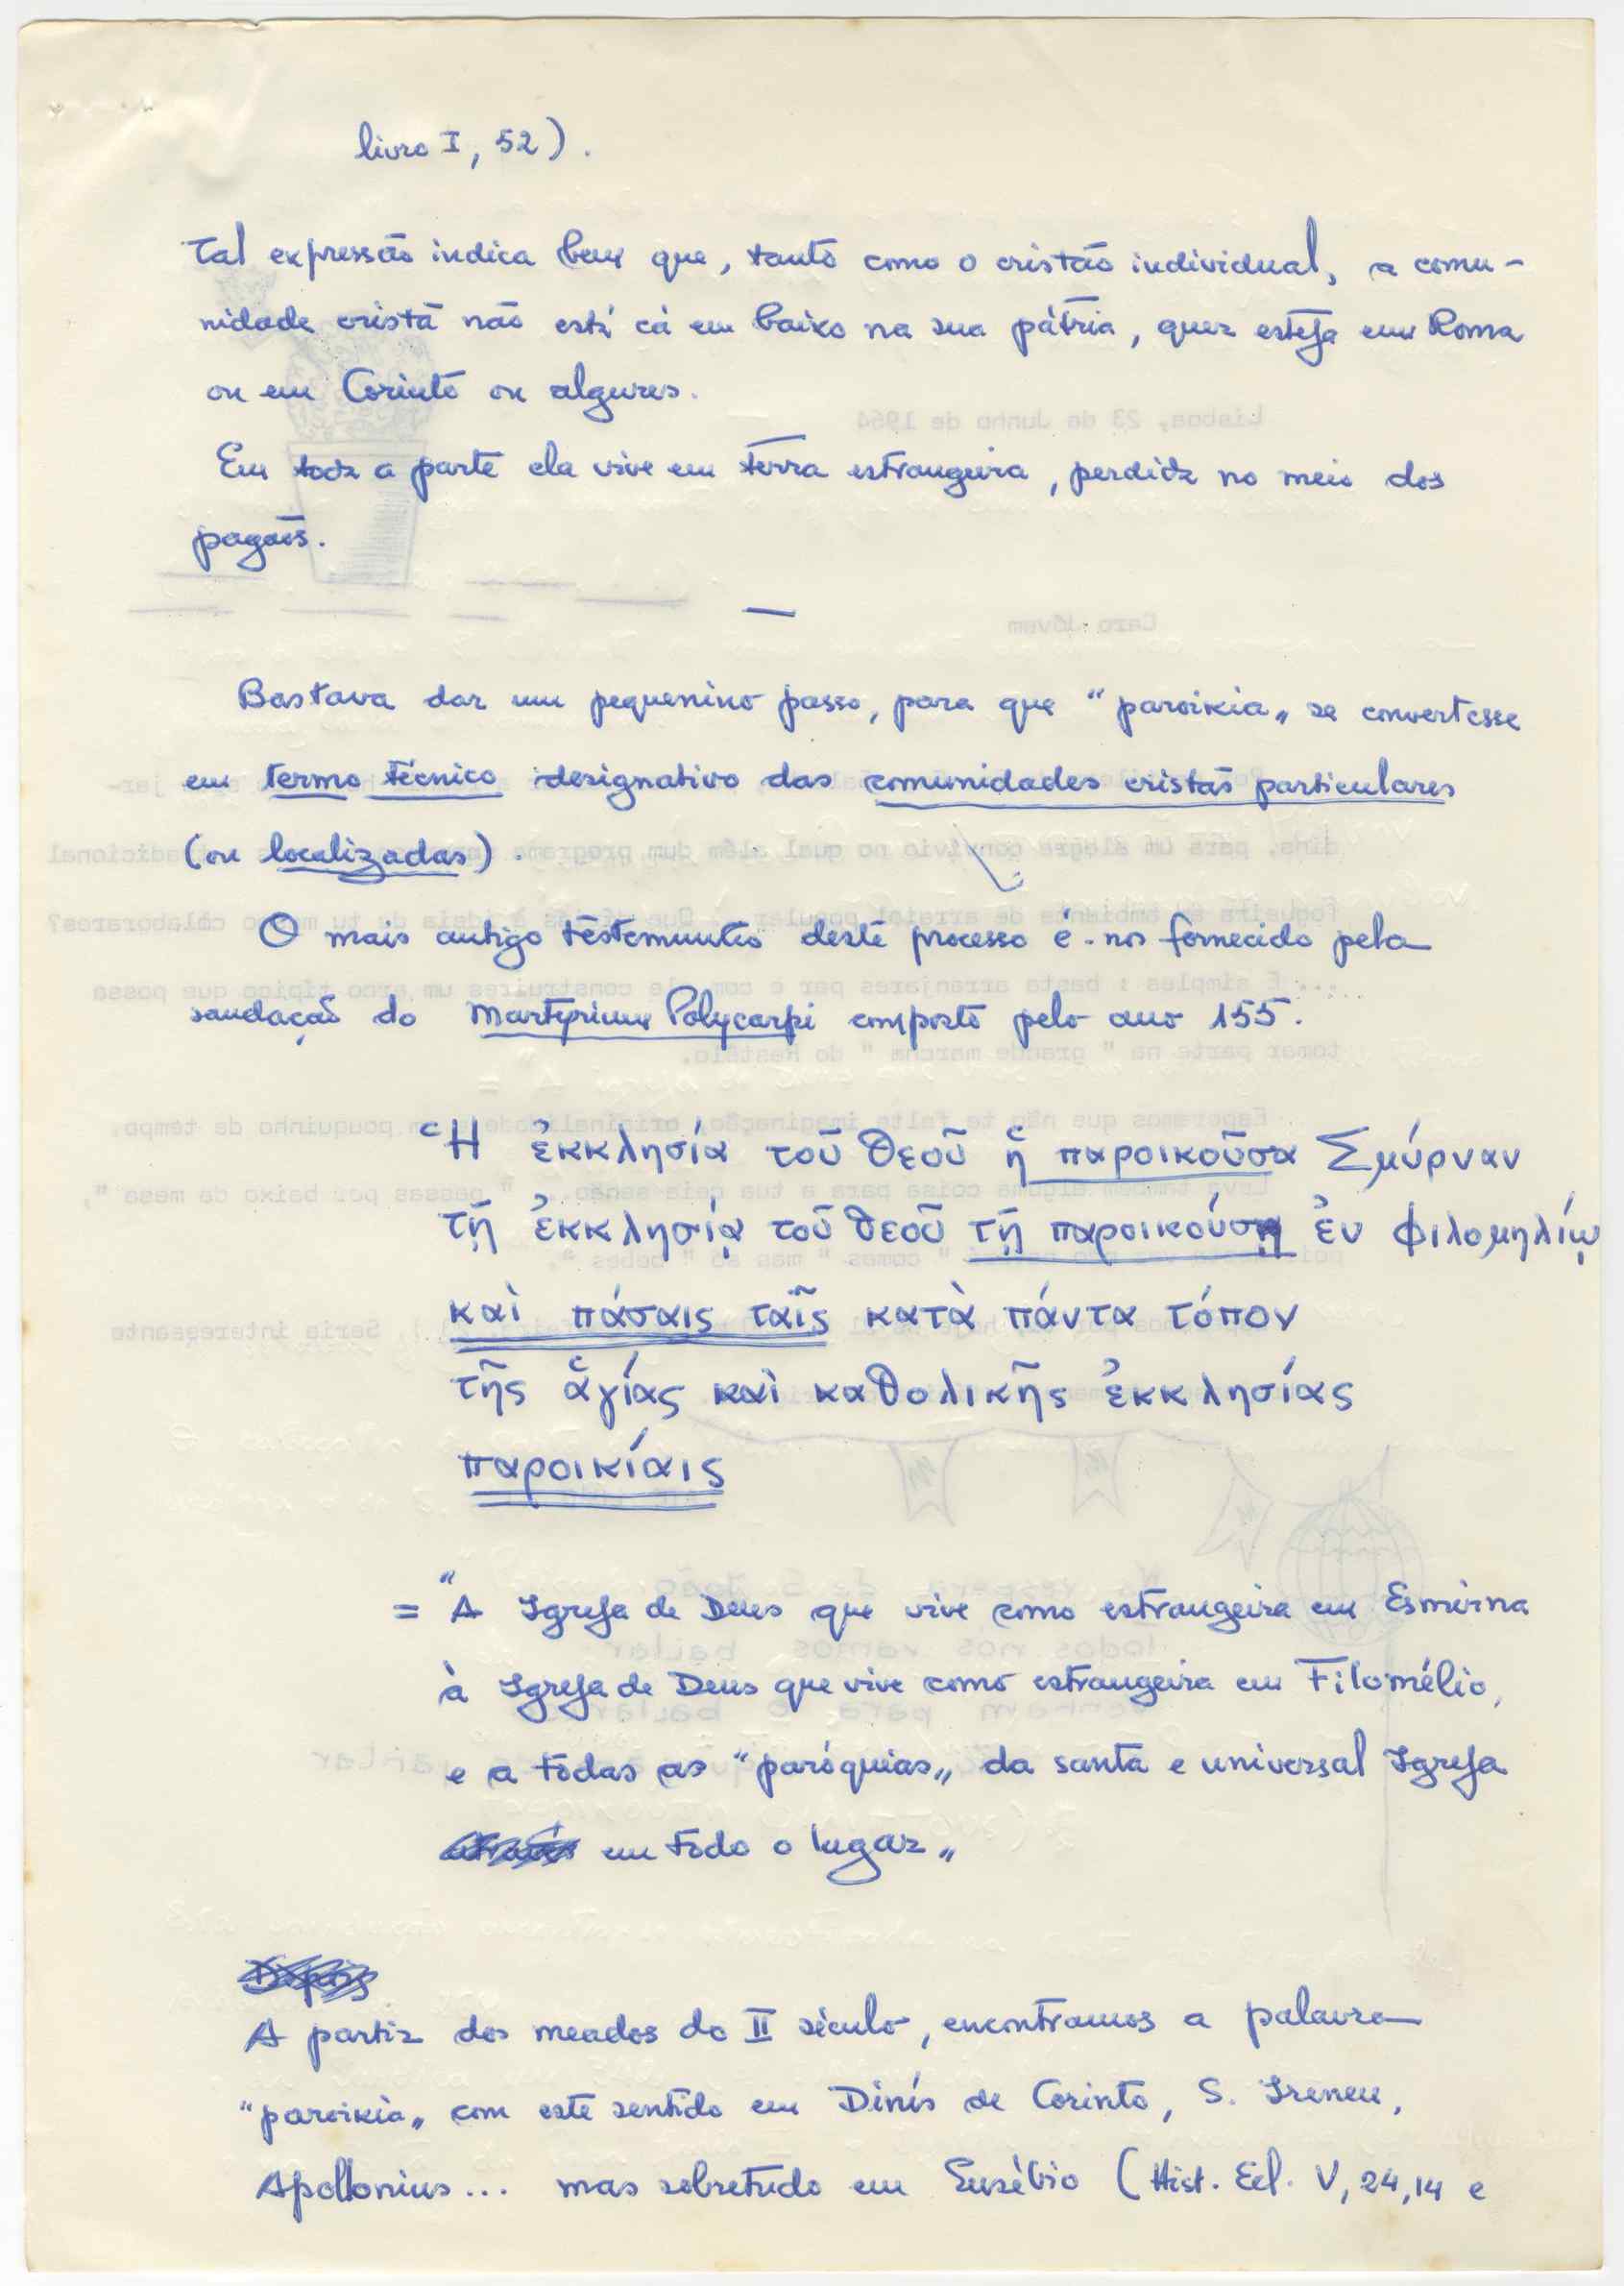 livro I, 52).
Tal expressão indica bem que, tanto como o cristão individual, a comu-
nidade cristã não está cá em baixo na sua pátria, quer esteja em Roma
ou em Corinto ou algures.
Em toda a parte ela vive em terra estrangeira, perdida no meio dos
pagãos.
—
Bastava dar um pequenino passo, para que "paroikia„ se convertesse
em termo técnico designativo das comunidades cristãs particulares
(ou localizadas).
O mais antigo testemunho deste processo é-nos fornecido pela
saudação do Martyrium Polycarpi composto pelo ano 155.
Ἡ ἐκκλησία τοῦ θεοῦ ἡ παροικοῦσα Σμύρναν
τῇ ἐκκλησίᾳ τοῦ θεοῦ τῇ παροικούσῃ ἐν Φιλομηλίῳ
καὶ πάσαις ταῖς κατὰ πάντα τόπον
τῆς ἁγίας καὶ καθολικῆς ἐκκλησίας
παροικίαις
= "A Igreja de Deus que vive como estrangeira em Esmirna
à Igreja de Deus que vive como estrangeira em Filomélio,
e a todas as "paróquias„ da santa e universal Igreja
em todo o lugar„
A partir dos meados do II século, encontramos a palavra
"paroikia„ com este sentido em Dinís de Corinto, S. Ireneu,
Apollonius... mas sobretudo em Eusébio (Hist. Ecl. V, 24, 14 e